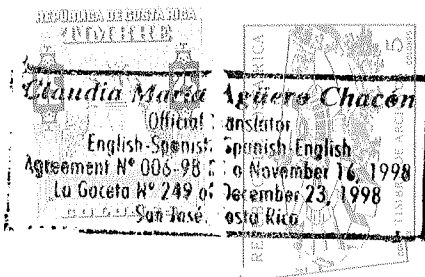 REPÚBLICA DE COSTA RICA
TIMBRE
Claudia María Agüero Chacón
Official Translator
English-Spanish Spanish-English
Agreement Nº 006-98 November 16, 1998
La Gaceta Nº 249 of December 23, 1998
San José, Costa Rica
5
COLONES